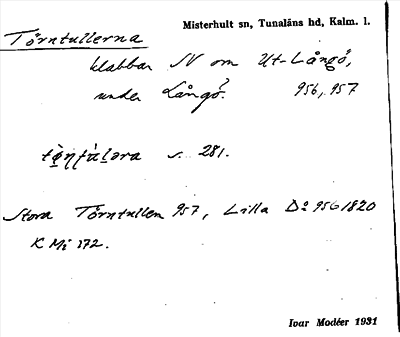 Misterhult sn, Tunaläns hd, Kalm. l.
Törntullerna
klabbar NV om Ut-Långö,
under Långö. 956, 957
s. 281.
Stora Törntullen 957, Lilla Do 956 1820
K Mi 172.
Ivar Modéer 1931